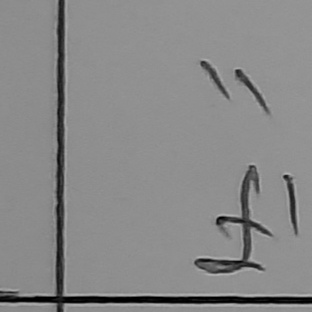 "
£1